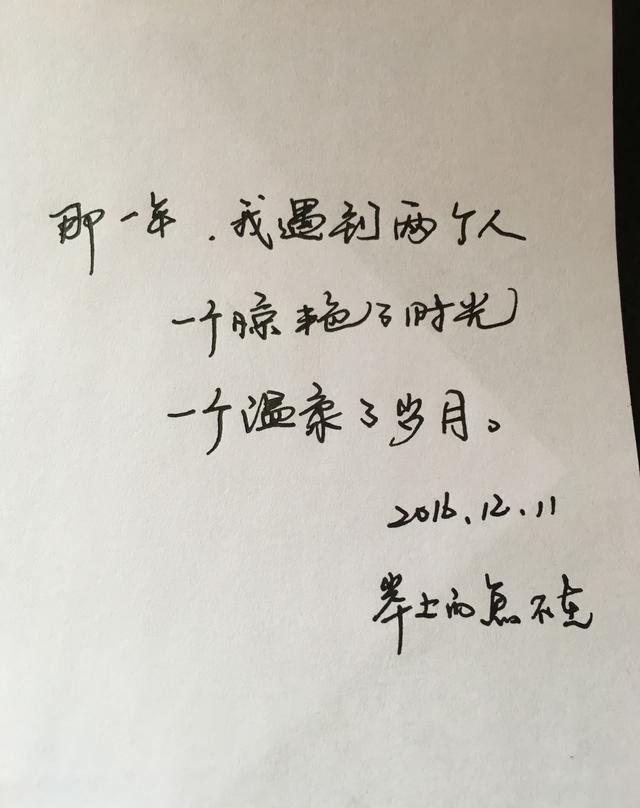 那一年，我遇到两个人
一个惊艳了时光
一个温柔了岁月。
2016.12.11
岸上的鱼不